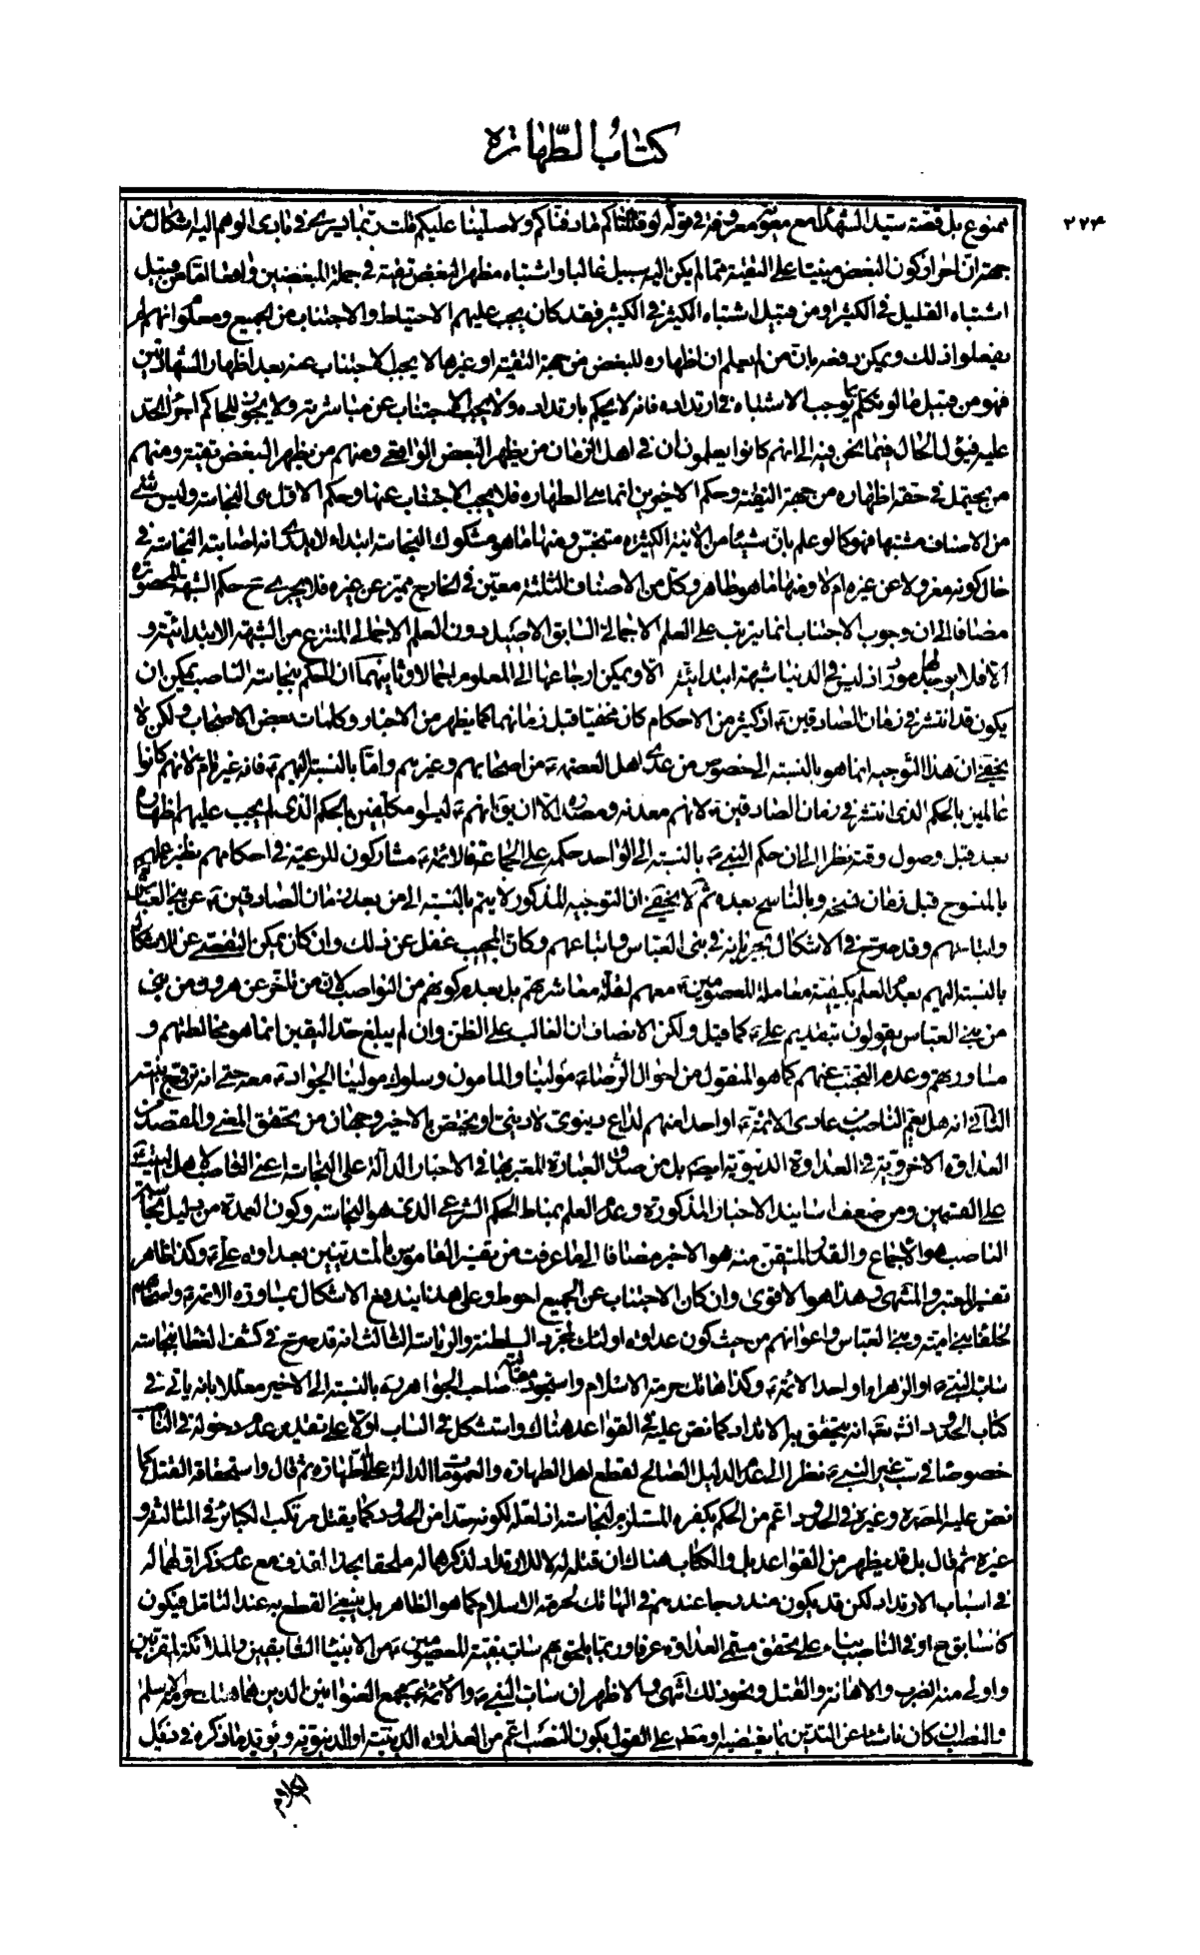 كتاب الطهارة
٢٢٤
ممنوع بل قصة سيد الشهداء مع معوية معروفة في قوله لو قتلناكم ما دفناكم ولا صلينا عليكم قلت ربما يسرى في بادى الوهم اليه اشكال من
جهة ان احراز كون البغض مبنيا على التقية مما لم يكن اليه سبيل غالبا واشتباه مظهر البغض تقية في جملة المبغضين في
اشتباه القليل في الكثير او من قبيل اشتباه الكثير في الكثير فقد كان يجب عليهم الاحتياط والاجتناب من الجميع ومعلوم انهم لم
يفعلوا ذلك ويمكن دفعه بان من لم يعلم ان اظهاره للبغض من جهة التقية او غيرها لا يجب الاجتناب عنه بعد اظهار الشهادتين
فهو من قبيل ما لو تكلم بما يوجب الاشتباه في ارتداده فانه لا يحكم بارتداده ولا يجب الاجتناب عن مباشرته ولا يجوز للحاكم اجراء الحد
عليه فيؤل الحال فيما نحن فيه الى انهم كانوا يعلمون ان في اهل الزمان من يظهر البغض الواقعي ومنهم من يظهر البغض تقية ومنهم
من يحتمل في حقه اظهاره من جهة التقية وحكم الاخيرين انما هي الطهارة فلا يجب الاجتناب عنها وحكم الاول هي النجاسة وليس شئ
من الاصناف مشتبها فهو كما لو علم بان شيئا من الانية الكثيرة متنجس ومنها ما هو مشكوك النجاسة ابتداء لا يدرى انه اصابته النجاسة في
حال كونه معزولا عن غيره ام لا ومنها ما هو طاهر وكل من الاصناف الثلثة معين في الخارج مميز عن غيره فلا يجرى ح حكم الشبهة المحصورة
مضافا الى ان وجوب الاجتناب انما يترتب على العلم الاجمالي السابق الاصيل دون العلم الاجمالي المنتزع من الشبهة الابتدائية و
الا فلا يوجد لها مورد اذ ليس في الدنيا شبهة ابتدائية الا ويمكن ارجاعها الى المعلوم اجمالا وثانيهما ان الحكم بنجاسة الناصب يمكن ان
يكون قد انتشر في زمان الصادقين ع اذ كثير من الاحكام كان مخفيا قبل زمانهما كما يظهر من الاخبار وكلمات بعض الاصحاب ولكن لا
يخفى ان هذا التوجيه انما هو بالنسبة الى خصوص من عدى اهل العصمة ع من اصحابهم وغيرهم واما بالنسبة اليهم ع فانه غير تام لانهم كانوا
عالمين بالحكم الذى انتشر في زمان الصادقين ع لانهم معدنه ومصدره الا ان يق انهم ع ليسوا مكلفين بالحكم الذى لم يجب عليهم اظهاره
بعد قبل وصول وقته نظرا الى ان حكم النبي ص بالنسبة الى الواحد حكمه على الجماعة فالائمة ع مشاركون للرعية في احكامهم نظير علمهم
بالمنسوخ قبل زمان نسخه وبالناسخ بعده ثم لا يخفى ان التوجيه المذكور لا يتم بالنسبة الى من بعد زمان الصادقين ع عن بني العباس
واتباعهم وقد صرح في الاشكال بجريانه في بنى العباس واتباعهم وكان المجيب غفل عن ذلك وان كان يمكن التفصى عن الاشكال
بالنسبة اليهم بعدم العلم بكيفية معاملة المعصومين ع معهم لقلة معاشرتهم بل بعدم كونهم من النواصب لان من تاخر عن هرون من بنى
من بنى العباس يقولون بتقديم على ع كما قيل ولكن الانصاف ان الغالب على الظن وان لم يبلغ حد اليقين انما هو مخالطتهم و
مساورتهم وعدم التجنب عنهم كما هو المنقول من احوال الرضا ع مولينا والمامون وسلوك مولينا الجواد ع معه حتى انه تزوج بنته
الثاني انه هل يعم الناصب من عادى الائمة ع او احدا منهم لداع دنيوى لا دينى او يختص بالاخير وجهان من تحقق المعنى والمقصد من
العداوة الاخروية في العداوة الدنيوية ايضا بل من صدق العبارة المعبر بها في الاخبار الدالة على النجاسة اعنى الناصب لاهل البيت
على القسمين ومن ضعف اسانيد الاخبار المذكورة وعدم العلم بمناط الحكم الشرعي الذى هو النجاسة وكون العمدة من دليل نجاسة
الناصب هو الاجماع والقدر المتيقن منه هو الاخير مضافا الى ما عرفت من تفسير القاموس بالمتدينين بعداوة على ع وكذا ظاهر
تفسير المعتبر والمنتهى وهذا هو الاقوى وان كان الاجتناب عن الجميع احوط وعلى هذا يندفع الاشكال بمساورة الائمة ع واصحابهم
لخلفاء بنى امية وبنى العباس واعوانهم من حيث كون عداوة اولئك لمجرد السلطنة والرياسة الثالث انه قد صرح في كشف الغطا بنجاسة
ساب النبي ص او الزهراء او احد الائمة ع وكذا هاتك حرمة الاسلام واستجود صاحب الجواهر ره بالنسبة الى الاخير معللا بانه ياتى في
كتاب الحدود انشاء الله تعالى انه يتحقق به الارتداد كما نص عليه في القواعد هناك واستشكل في الساب اولا على تقدير عدم دخوله في الناصب
خصوصا في سب غير النبي ص نظرا الى عدم الدليل الصالح لقطع اصل الطهارة والعمومات الدالة على الطهارة ثم قال واستحقاقه القتل كما
نص عليه المصره وغيره في الحدود اعم من الحكم بكفره المستلزم لنجاسته اذ لعله لكونه حدا من الحدود كما يقتل مرتكب الكبائر في الثالثة و
غيره ثم قال بل قد يظهر من القواعد بل والكتاب هناك ان قتله له لا للارتداد لذكرهما له ملحقا بحد القذف مع عدم ذكر اقسامه له
في اسباب الارتداد لكن قد يكون مندرجا عندهم في الهاتك لحرمة الاسلام كما هو الظاهر بل ينبغي القطع به عند التامل فيكون
كالسابق ح او في الناصب بناء على تحقق مسمى العداوة عرفا وربما يلحق بهم ساب بقية المعصومين ع من الانبياء السابقين والملائكة المقربين
واولى منه الضرب والاهانة والقتل ونحو ذلك انتهى والاظهر ان ساب النبي ص والائمة ع مجمع العنوانين الذين هما هتك حرمة الاسلم
والنصب ان كان ناشئا عن التدين بما يقتضيه او مطلقا على القول بكون النصب اعم من العداوة الدينية او الدنيوية ويؤيد ما ذكره في ذيل
الكلام